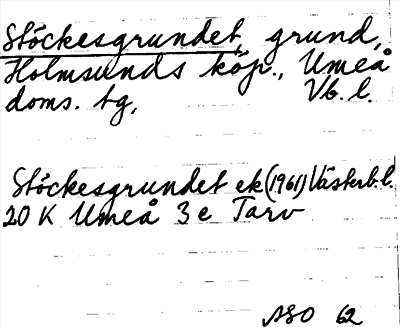 Stöckesgrundet, grund,
Holmsunds köp., Umeå
doms. tg, Vb. l.
Stöckesgrundet ek (1961) Västerb. l.
20 K Umeå 3 e Tarv
ASO 62